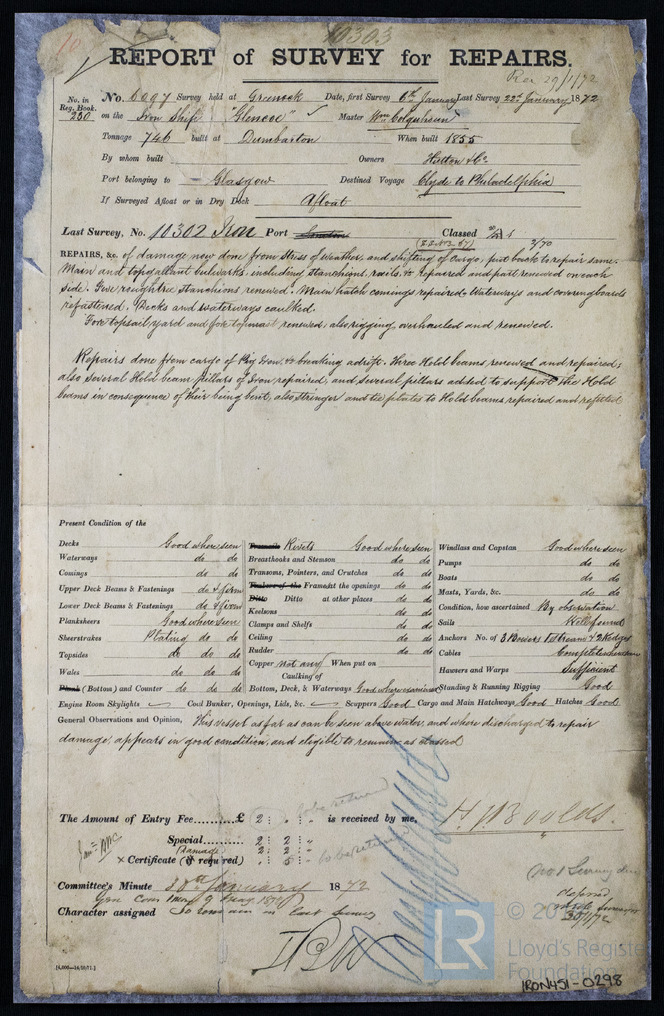 10303
10
REPORT of SURVEY for REPAIRS.
Rec 29/1/72
No. in Reg. Book. 250
No. 6097 Survey held at Greenock Date, first Survey 6th January Last Survey 22nd January 1872
on the Iron Ship "Glencoe" Master Wm Colquhoun
Tonnage 746 built at Dumbarton When built 1855
By whom built Owners Hutton & Co
Port belonging to Glasgow Destined Voyage Clyde to Philadelphia
If Surveyed Afloat or in Dry Dock Afloat
Last Survey, No. 10302 Iron Port London Classed
2/70
REPAIRS, &c. of damage now done from stress of weather, and shifting of Cargo, put back to repair same.
Main and topgallant bulwarks, including stanchions, rails, &c repaired and part renewed on each
side. Five roughtree stanchions renewed. Main hatch comings repaired. Waterways and coveringboards
refastened. Decks and waterways caulked.
Fore topsail yard and fore topmast renewed, also rigging, overhauled and renewed.
Repairs done from cargo of Pig Iron, &c breaking adrift. Three Hold beams renewed and repaired;
also several Hold beam pillars of Iron repaired, and several pillars added to support the Hold
beams in consequence of their being bent, also stringer and tie plates to Hold beams repaired and refitted
Present Condition of the
Decks Good where seen
Waterways do do
Comings do do
Upper Deck Beams & Fastenings do & firm
Lower Deck Beams & Fastenings do & firm
Planksheers Good where seen
Sheerstrakes Plating do do
Topsides do do
Wales do do
Plank (Bottom) and Counter do do do
Treenails Rivets Good where seen
Breasthooks and Stemson do do
Transoms, Pointers, and Crutches do do
Timbers of the Frame at the openings do do
Ditto Ditto at other places do do
Keelsons do do
Clamps and Shelfs do do
Ceiling do do
Rudder do do
Copper not any When put on
Caulking of
Bottom, Deck, & Waterways Good where examined
Windlass and Capstan Good where seen
Pumps do do
Boats do do
Masts, Yards, &c. do do
Condition, how ascertained By observation
Sails Well found
Anchors No. of 3 Bowers 1 Stream & 2 Kedges
Cables Complete
Hawsers and Warps Sufficient
Standing & Running Rigging Good
Engine Room Skylights Coal Bunker, Openings, Lids, &c. Scuppers Good Cargo and Main Hatchways Good Hatches Good
General Observations and Opinion, This vessel as far as can be seen above water, and where discharged to repair
damage, appears in good condition, and eligible to remain as classed
The Amount of Entry Fee......... £ 2 : " : " is received by me,
to be returned
Special......... 2 : 2 : "
Damage 2 : 2 : "
× Certificate (if required) . : 5 : " to be returned
Committee's Minute 30th January 1872
Character assigned To remain in
No 1 Survey due
Deferred
30/1/72
[4,000—14/10/71.]
LR
© 20
Lloyd's Register
Foundation
IRON451-0298